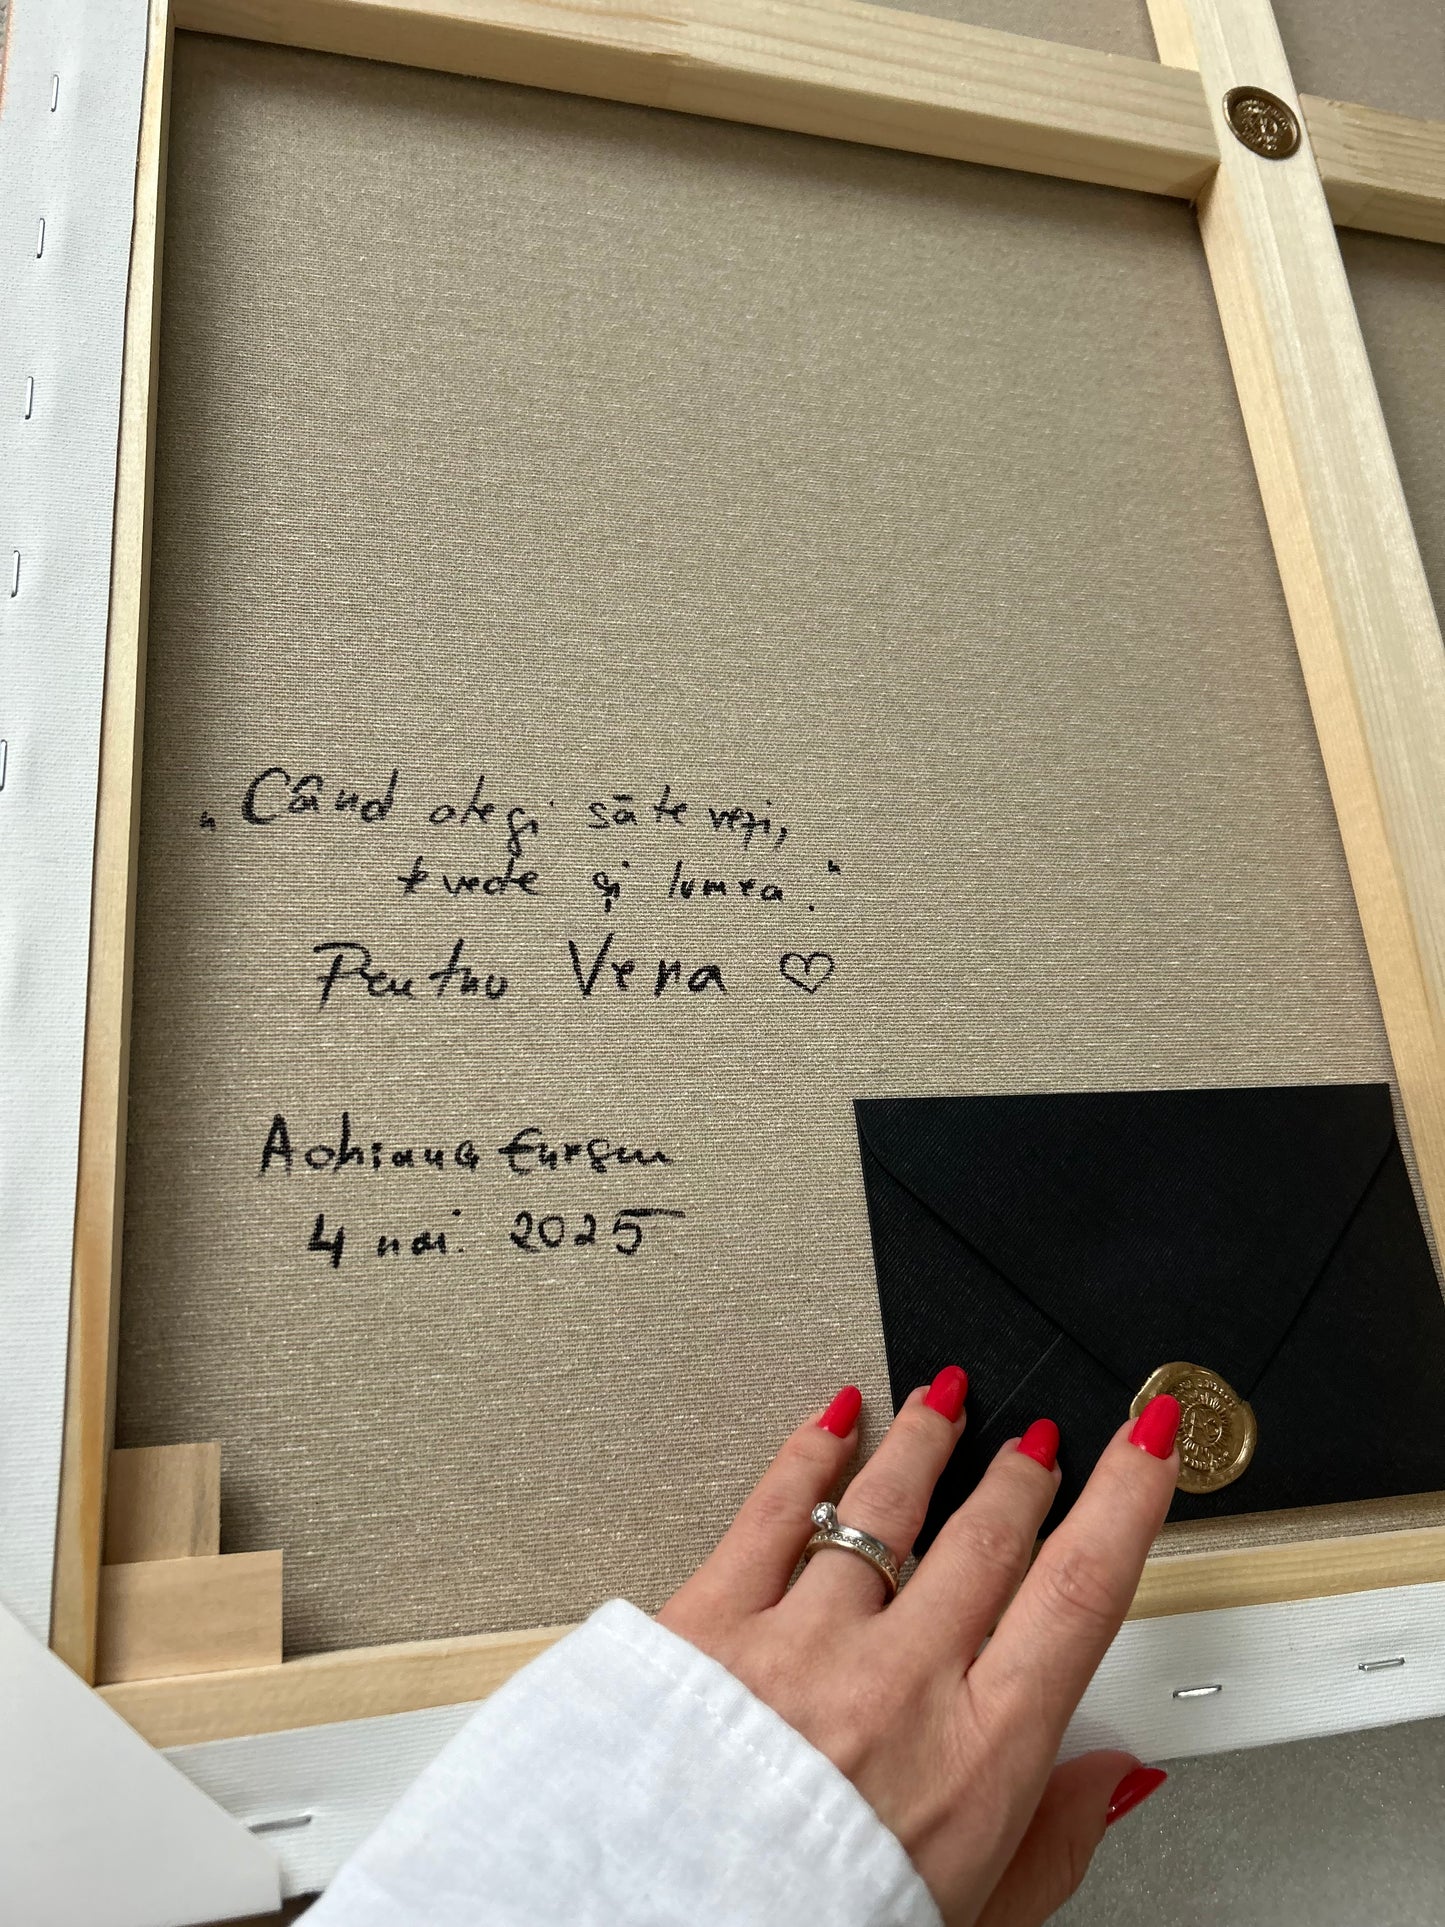 „Când alegi să te vezi,
te vede și lumea."
Pentru Vera ♡
Adriana
4 mai. 2025